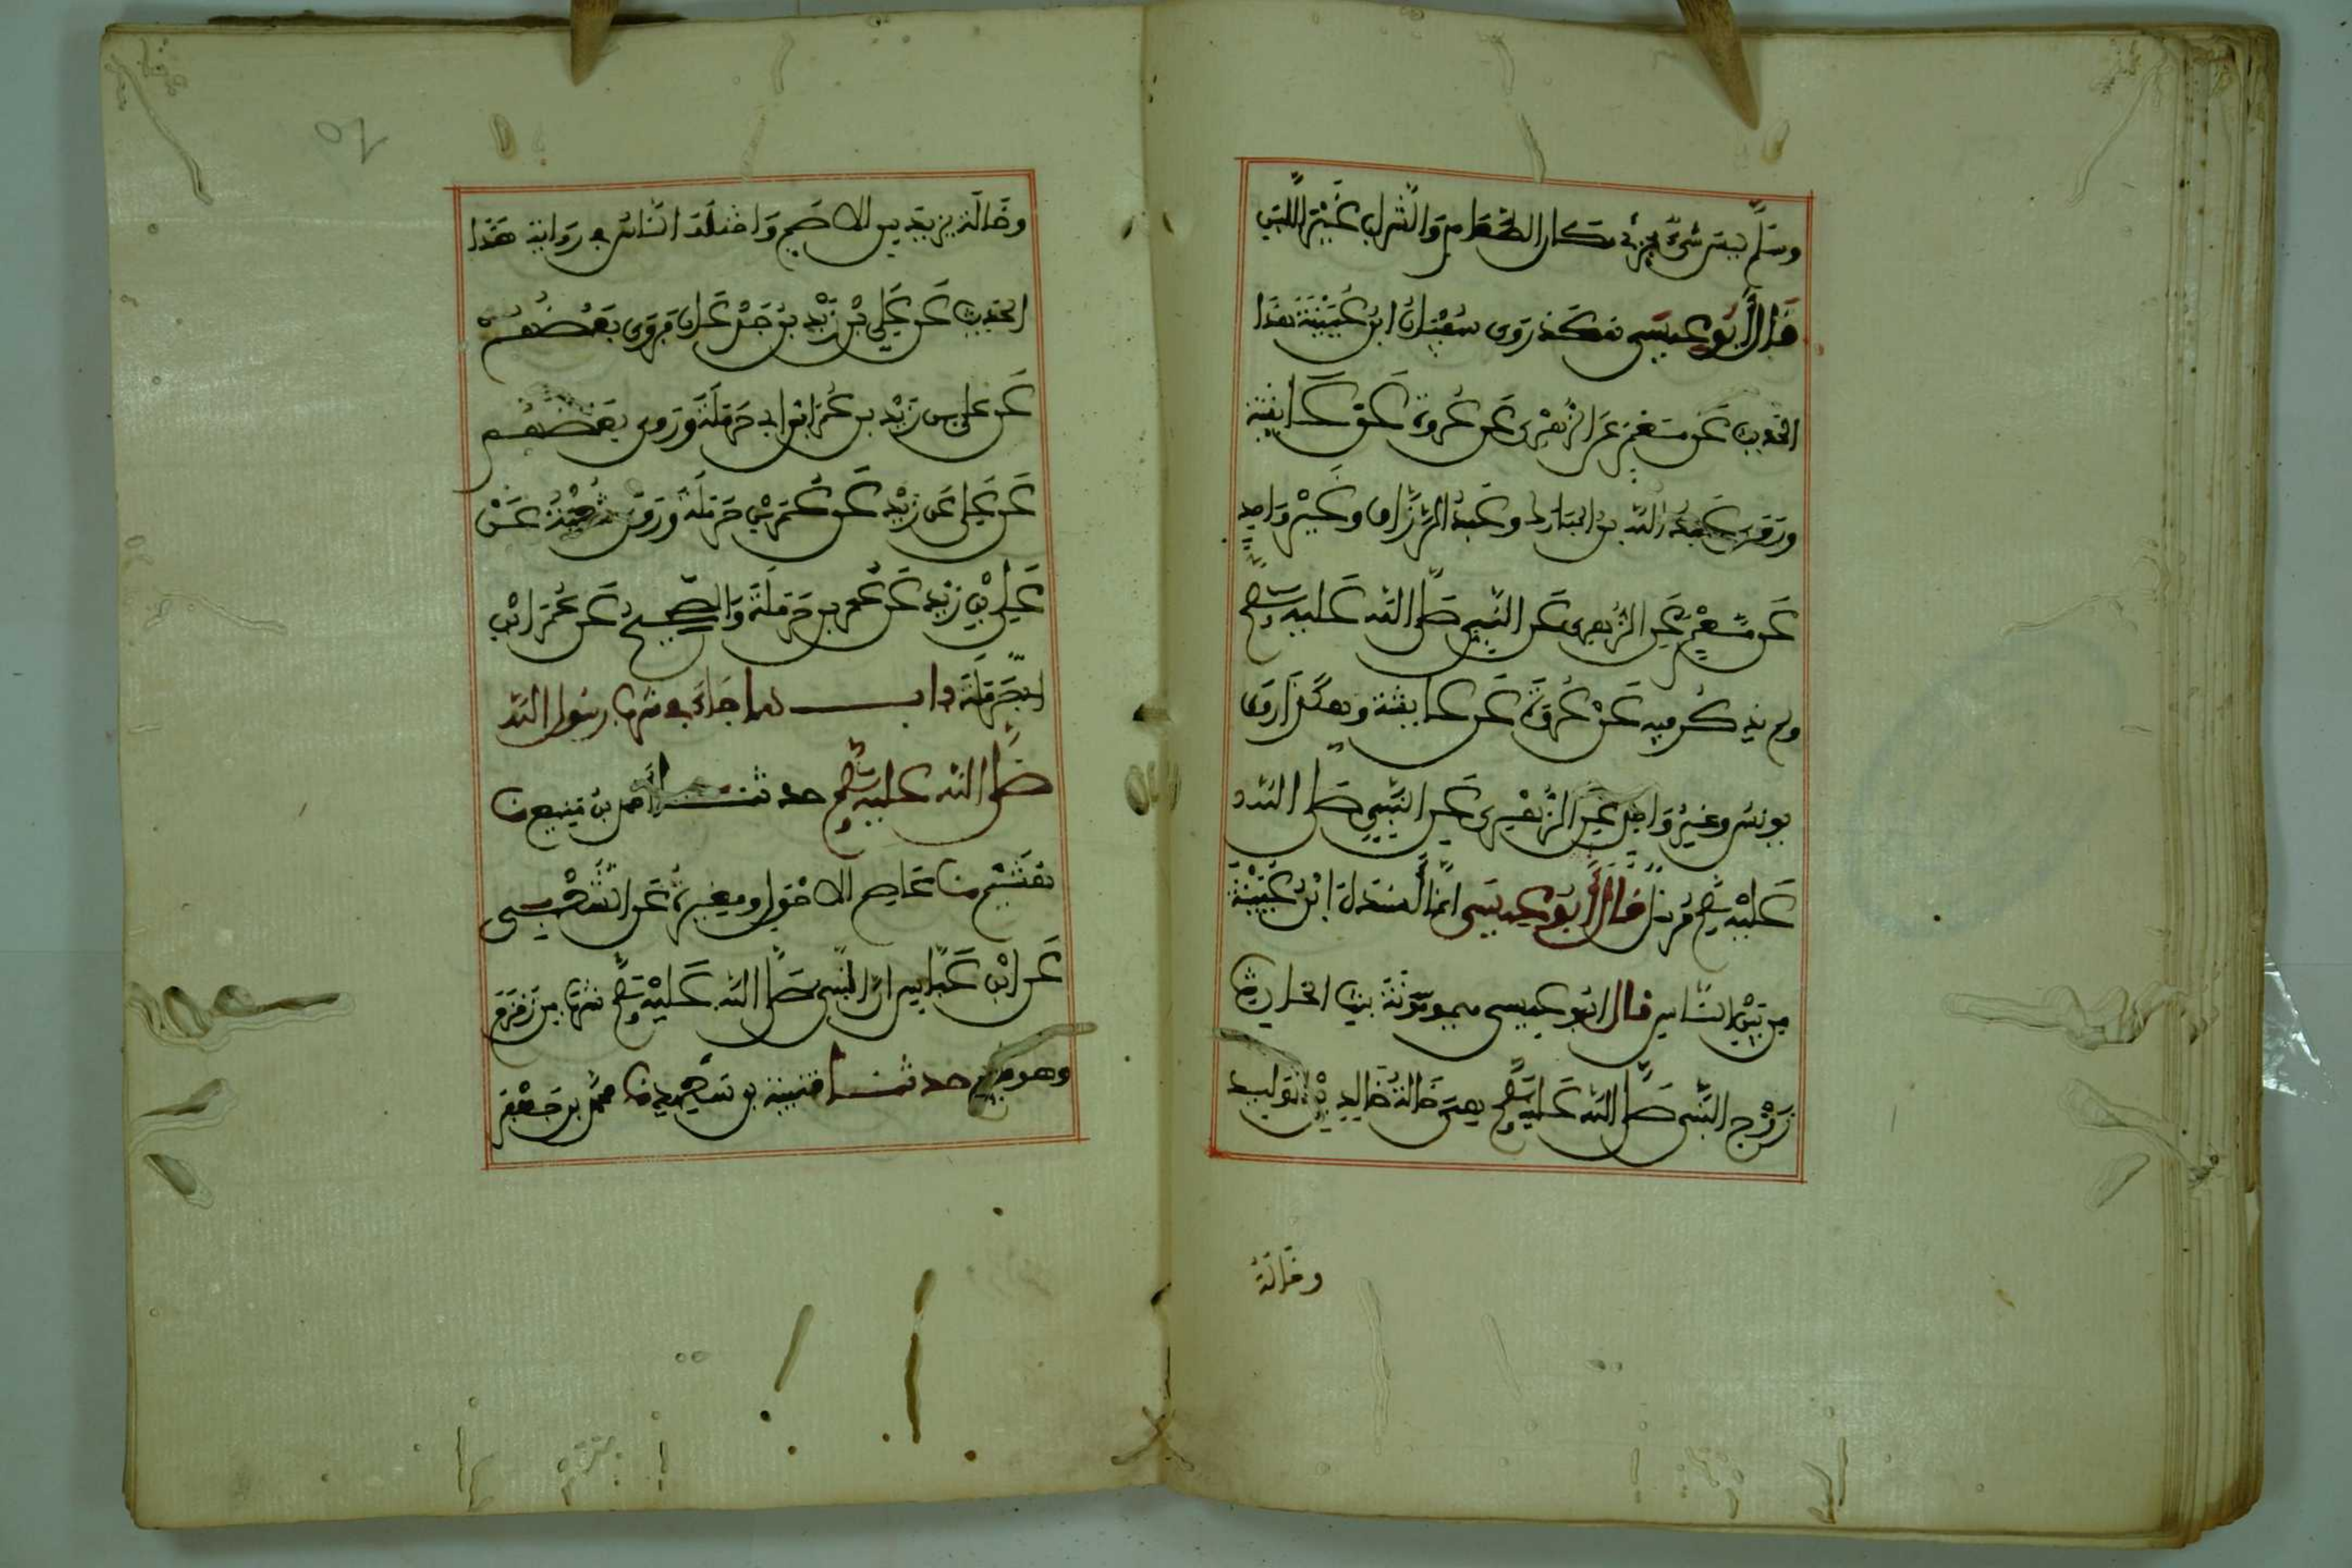 وسلم ليس شيء يجزئ مكان الطعام والشراب غير اللبن
قال أبو عيسى هكذ روى سفيان ابن عيينة هذا
الحديث عن معمر عن الزهري عن عروة عن عايشة
وروى عبد الله بن المبارك وعبد الرزاق وغير واحد
عن معمر عن الزهري عن النبي صلى الله عليه وسلم
ولم يذكر فيه عن عروة عن عايشة وهكذا روى
يونس وغير واحد عن الزهري عن النبي صلى الله
عليه وسلم مرسل قال أبو عيسى انما أسنده ابن عيينة
من بين الناس قال ابو عيسى ميمونة بنت الحارث
زوج النبي صلى الله عليه وسلم هي خالة خالد بن الوليد
وخالة
وخالة يزيد بن الاصم واختلف الناس في رواية هذا
الحديث عن علي بن زيد بن جدعان فروى بعضهم
عن علي بن زيد بن عمر ابن ابي حرملة وروى بعضهم
عن علي عن زيد عن عمر بن حرملة وروى شعبة عن
علي بن زيد عن عمر بن حرملة والصحيح عن عمر ابن
ابي حرملة باب ما جاء في شرب رسول الله
صلى الله عليه وسلم حدثنا أحمد بن منيع نا
هشيم نا عاصم الاحول ومغيرة عن الشعبي
عن ابن عباس ان النبي صلى الله عليه وسلم شرب من زمزم
وهو قايم حدثنا قتيبة بن سعيد نا محمد بن جعفر